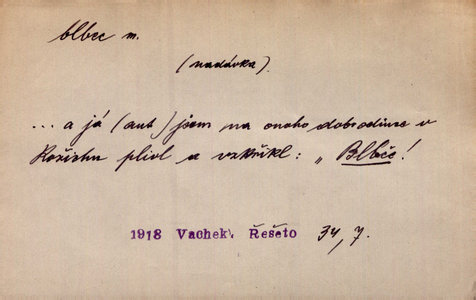 blbec m.
(nadávka).
... a já (aut) jsem na onoho dobrodince v
plivl a vzkřikl: „Blbče!
1918 Vachek, Řešeto 34, 7.